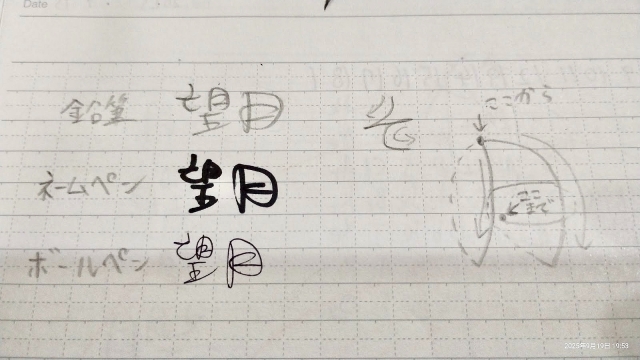 Date
鉛筆 望月
ネームペン 望月
ボールペン 望月
ここから
ここまで
2025年9月19日 19:53